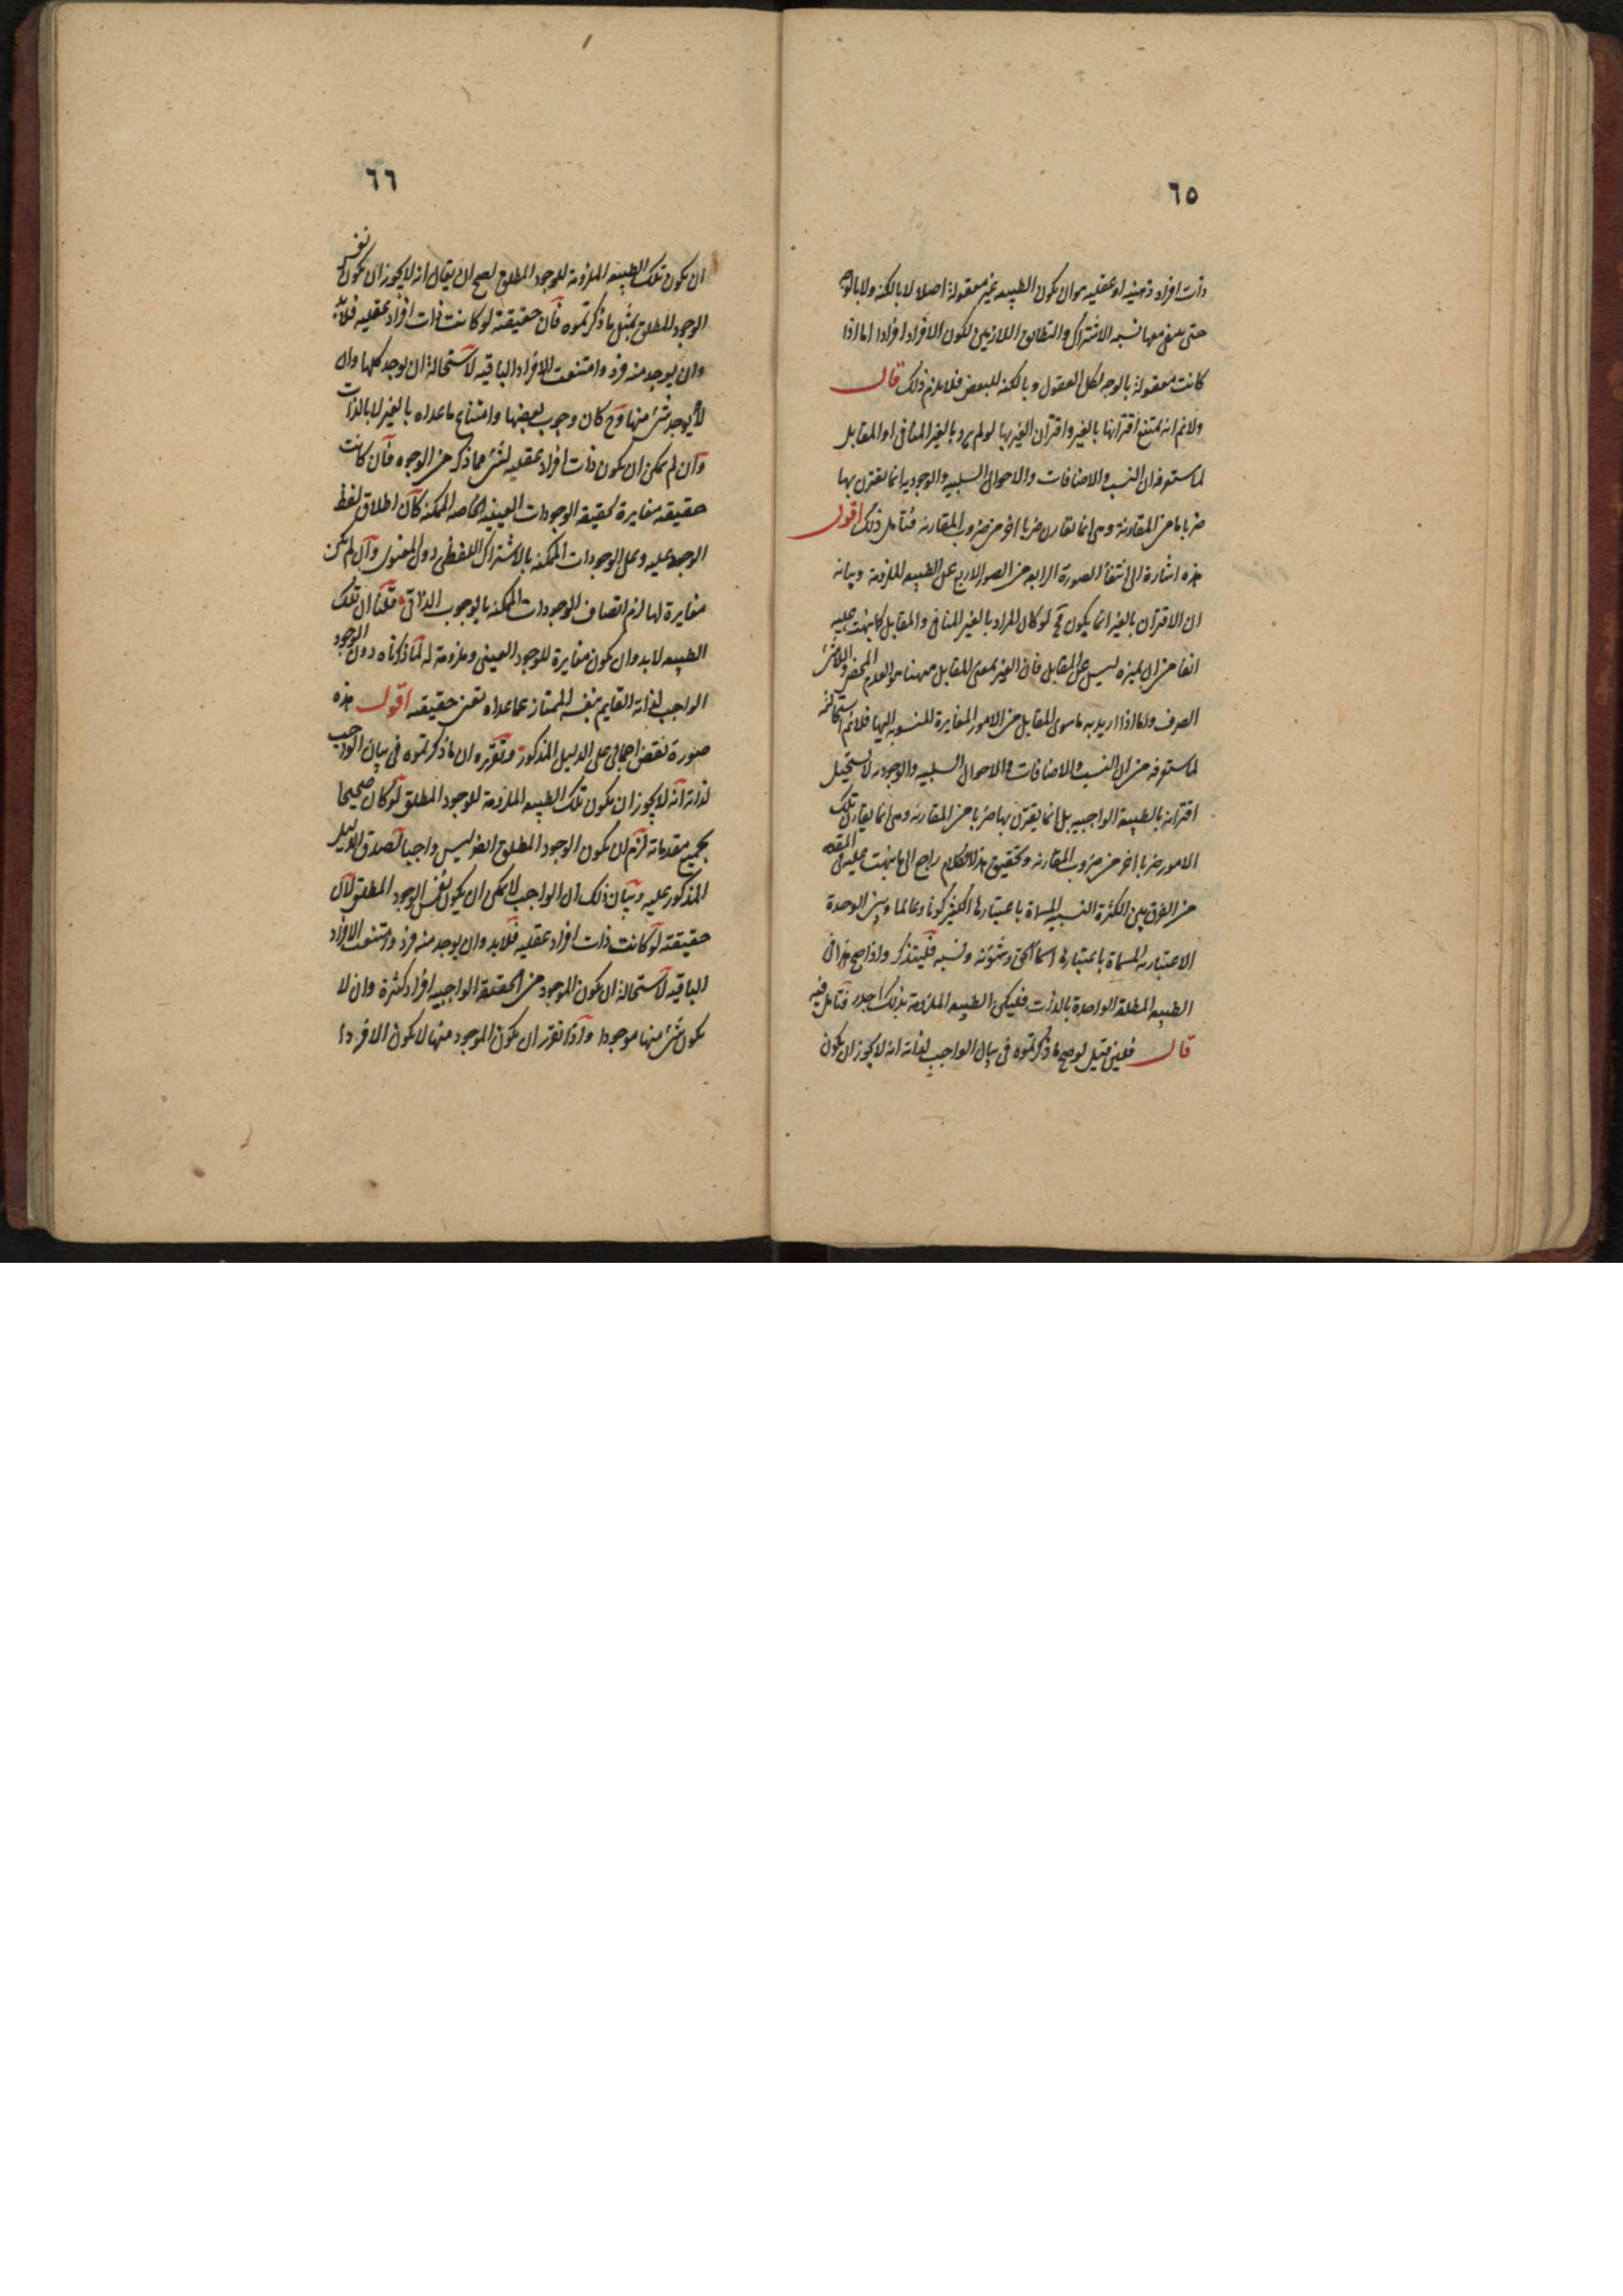 ٦٥
ذات افراد ذهنية او عقلية هو ان يكون الطبيعه غير معقولة اصلا لا بالكنه ولا بالوجه
حتى ينتفى معها نسبه الاشتراك والتطابق اللازمين لكون الافراد افرادا اما اذا
كانت معقولة بالوجه لكل العقول وبالكنه للبعض فلا يلزم ذلك قال
ولانم انه يمتنع اقترانها بالغير واقتران الغير بها لو لم يرد بالغير المنافى او المقابل
لما ستعرفه ان النسب والاضافات والاحوال السلبيه والوجوديه انما يقترن بها
ضربا ما من المقارنة وهى انما تقارن ضربا اخر من ضروب المقارنه فتأمل ذلك اقول
هذه اشارة الى انتفاء الصورة الرابعه من الصور الاربع عن الطبيعه الملزومة وبيانه
ان الاقتران بالغير انما يكون مح لو كان المراد بالغير المنافى والمقابل كما نبهت عليه
انفا من ان تميزه ليس عن المقابل فان الغير بمعنى المقابل ههنا هو العدم المحض واللاشئ
الصرف واما اذا اريد به ما سوى المقابل من الامور المغايرة المنسوبه اليها فلانم استحالته
لما ستعرفه من ان النسب والاضافات والاحوال السلبيه والوجوديه لا يستحيل
اقترانه بالطبيعة الواجبيه بل انما يقترن بها ضربا من المقارنه وهى انما يقارن تلك
الامور ضربا اخر من ضروب المقارنه وتحقيق هذا الكلام راجع الى ما نبهت عليه فى المقدمه
من الفرق بين الكثرة النسبيه المسماة باعتبارها الكثير كونا وعالما وبين الوحدة
الاعتباريه المسماة باعتبارها اسماء الحق وشئونه ونسبه فليتذكر واذا صح هذا فى
الطبيعه المطلقه الواحدة بالذات فليكن الطبيعه الملزومة بذلك اجدر فتأمل فيه
قال فلئن قيل لو صح ما ذكرتموه فى بيان الواجب لذاته انه لا يجوز ان يكون
٦٦
ان يكون تلك الطبيعه الملزومة للوجود المطلق لصح ان يقال انه لا يجوز ان يكون نفس
الوجود المطلق بمثل ما ذكرتموه فان حقيقته لو كانت ذات افراد عقليه فلابد
وان يوجد منه فرد وامتنعت الافراد الباقيه لاستحالة ان يوجد كلها وان
لا يوجد شئ منها وح كان وجوب بعضها وامتناع ما عداه بالغير لا بالذات
وان لم يمكن ان يكون ذات افراد عقليه لشئ مما ذكر من الوجوه فان كانت
حقيقته مغايرة لحقيقة الوجودات العينيه الخاصه الممكنه كان اطلاق لفظ
الوجود عليه وعلى الوجودات الممكنه بالاشتراك اللفظى دون المعنوى وان لم يكن
مغايرة لها لزم اتصاف الوجودات الممكنه بالوجوب الذاتى قلنا ان تلك
الطبيعه لا بد وان يكون مغايرة للوجود العينى وملزومة له لما ذكرناه دون الوجود
الواجب لذاته القايم بنفسه الممتاز عما عداه بتعين حقيقته اقول هذه
صورة نقض اجمالى على الدليل المذكور وتقريره ان ما ذكرتموه فى بيان الواجب
لذاته انه لا يجوز ان يكون تلك الطبيعه الملزومة للوجود المطلق لو كان صحيحا
بجميع مقدماته لزم ان يكون الوجود المطلق ايضا ليس واجبا لصدق الدليل
المذكور عليه وبيان ذلك ان الواجب لا يمكن ان يكون نفس الوجود المطلق لان
حقيقته لو كانت ذات افراد عقليه فلابد وان يوجد منه فرد وامتنعت الافراد
الباقيه لاستحالة ان يكون الموجود من الحقيقة الواجبيه افراد كثيرة وان لا
يكون شئ منها موجودا واذا تقرر ان يكون الموجود منها لا يكون الا فردا